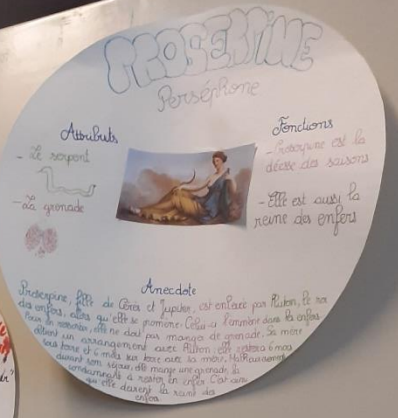 PROSERPINE
Perséphone
Attributs
- Le serpent
- La grenade
Fonctions
- Proserpine est la
déesse des saisons
- Elle est aussi la
reine des enfers
Anecdote
Proserpine, fille de Cérès et Jupiter, est enlevée par Pluton, le roi
des enfers, alors qu'elle se promène. Celui-ci l'emmène dans les enfers.
Pour en ressortir, elle ne doit pas manger de grenade. Sa mère
obtient un arrangement avec Pluton: elle restera 6 mois
sous terre et 6 mois sur terre avec sa mère. Malheureusement,
durant son séjour, elle mange une grenade, la
condamnant à rester en enfer. C'est ainsi
qu'elle devient la reine des
enfers.